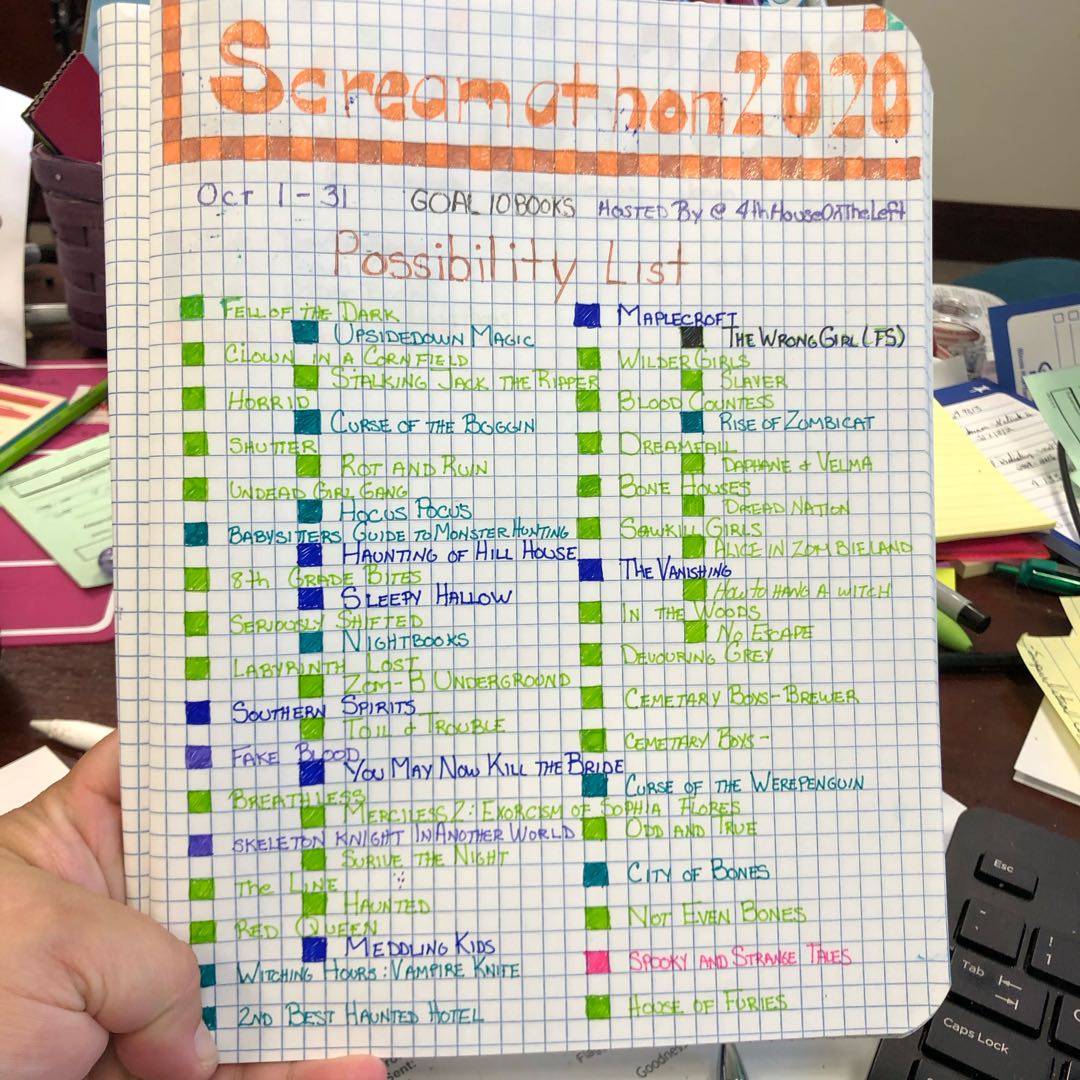 Screamathon 2020
Oct 1-31 GOAL 10 BOOKS HOSTED By @ 4thHouseOnTheLeft
Possibility List
FELL OF THE DARK
UPSIDEDOWN MAGIC
CLOWN IN A CORNFIELD
STALKING JACK THE RIPPER
HORRID
CURSE OF THE BOGGIN
SHUTTER
ROT AND RUIN
UNDEAD GIRL GANG
HOCUS POCUS
BABYSITTERS GUIDE TO MONSTER HUNTING
HAUNTING OF HILL HOUSE
8th GRADE BITES
SLEEPY HALLOW
SERIOUSLY SHIFTED
NIGHTBOOKS
LABYRINTH LOST
ZOM-B UNDERGROUND
SOUTHERN SPIRITS
TOIL & TROUBLE
FAKE BLOOD
YOU MAY NOW KILL THE BRIDE
BREATHLESS
MERCILESS 2: EXORCISM OF SOPHIA FLORES
SKELETON KNIGHT IN ANOTHER WORLD
SURIVE THE NIGHT
The LINE
HAUNTED
RED QUEEN
MEDDLING KIDS
WITCHING HOURS: VAMPIRE KNIFE
2ND BEST HAUNTED HOTEL
MAPLECROFT
THE WRONG GIRL (FS)
WILDER GIRLS
SLAYER
BLOOD COUNTESS
RISE OF ZOMBICAT
DREAMFALL
DAPHANE & VELMA
BONE HOUSES
DREAD NATION
SAWKILL GIRLS
ALICE IN ZOMBIELAND
THE VANISHING
HOW TO HANG A WITCH
IN THE WOODS
NO ESCAPE
DEVOURING GREY
CEMETARY BOYS-BREWER
CEMETARY BOYS-
CURSE OF THE WEREPENGUIN
ODD AND TRUE
CITY OF BONES
NOT EVEN BONES
SPOOKY AND STRANGE TALES
HOUSE OF FURIES
Esc
Tab
Caps Lock